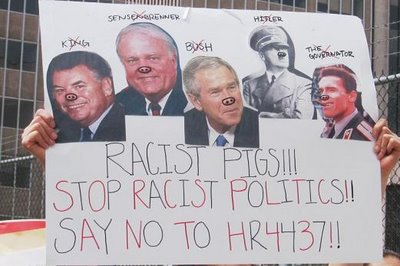 KING SENSENBRENNER BUSH HITLER THE GOVERNATOR
RACIST PIGS!!!
STOP RACIST POLITICS!!
SAY NO TO HR4437!!